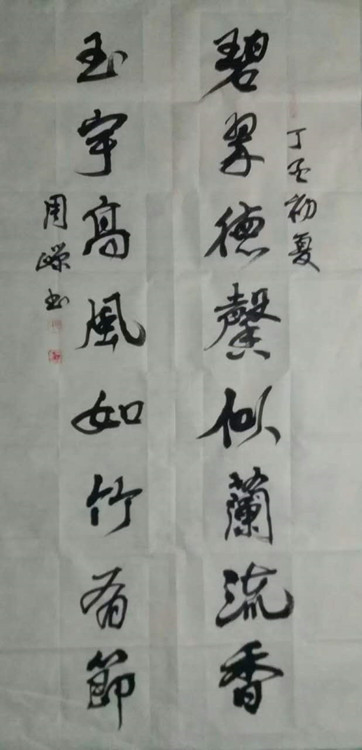 丁酉初夏
碧翠德馨似蘭流香
玉宇高風如竹有節
周嶸书